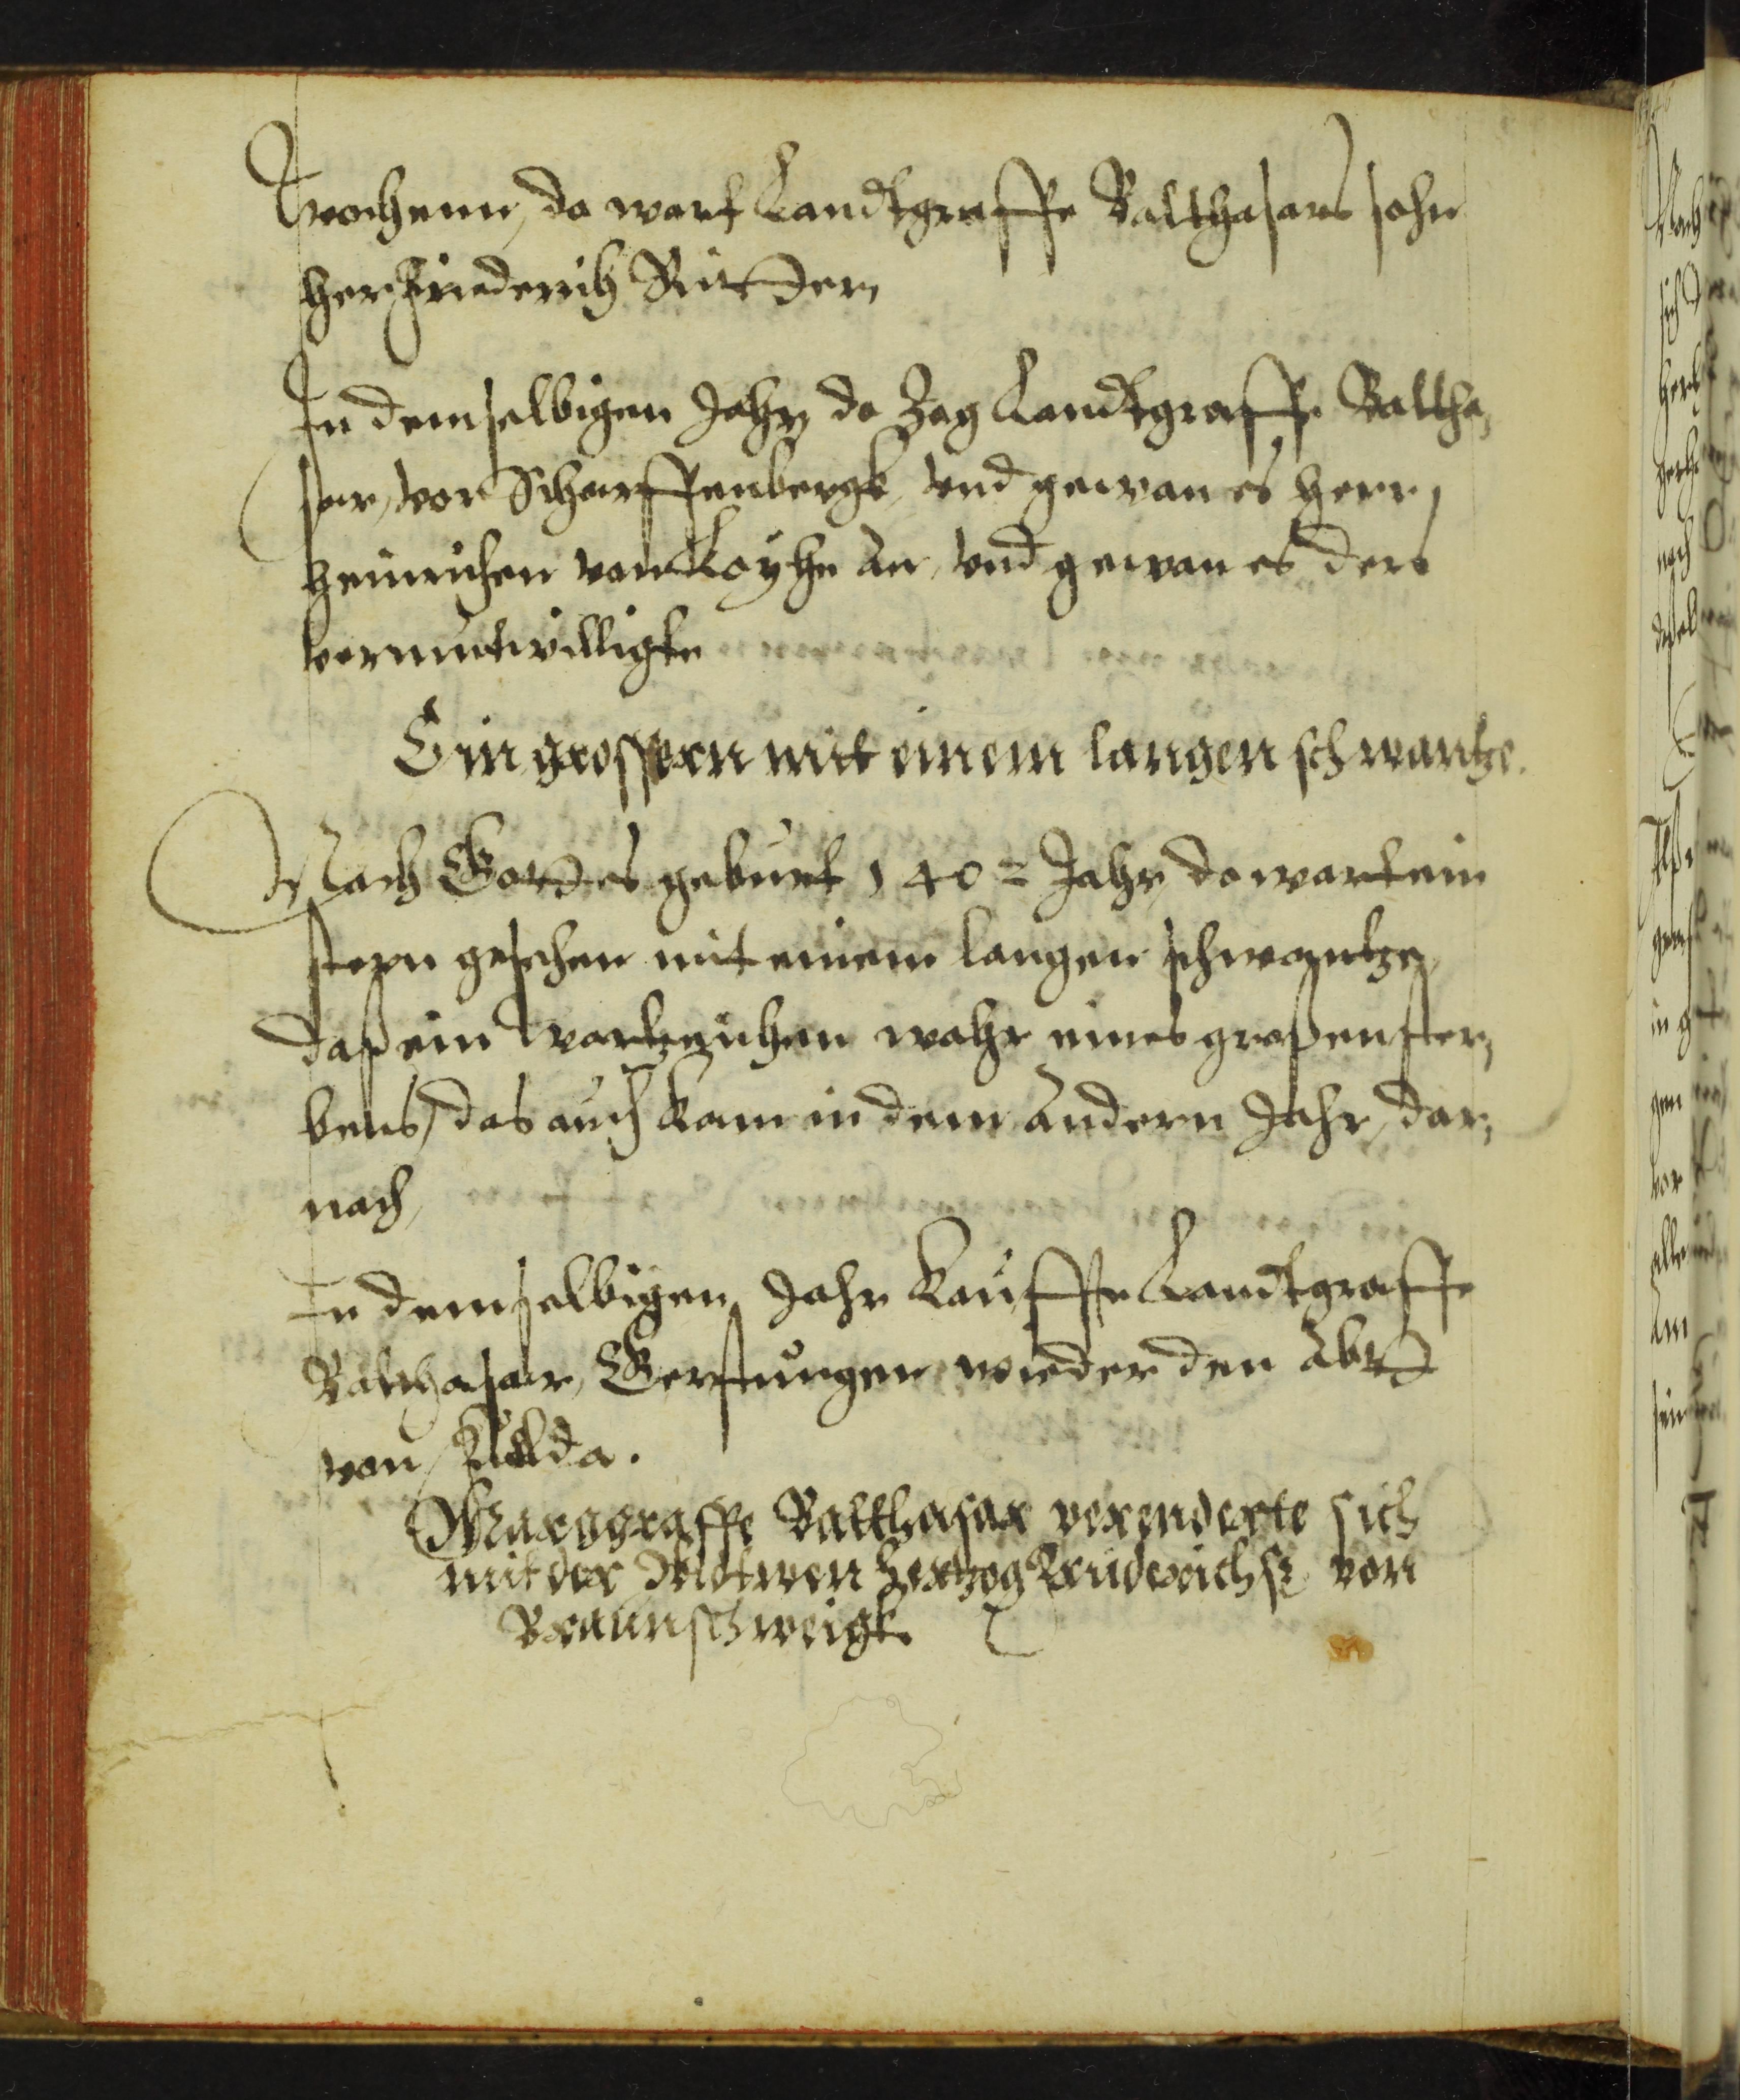 wochenn, da wart Landtgraffe Balthasars sohn
her Friederich Ritter,
In demselbigen Jahr, da Zog Landtgraffe Baltha,
sar, vor Scharffenbergk, vnd gewan es herr,
Heinrichen von Loyhe an, vnd gewan es der
vermutwilligte
Ein gros stern mit einem langen schwantze.
Nach Gottes geburt 140= Jahr, da wart ein
stern gesehen mit einem langen schwantze,
daß ein Wartzeichen wahr eines großen ster,
bens, das auch kam in dem andern Jahr, dar,
nach,
In demselbigen Jahr kauffte Landtgraffe
Balthasar, Gerstungen wieder den Abtt
von Fulda.
Marggraffe Balthasar verenderte sich
mit der Widtwen Hertzog Friderichs von
Braunschweigk.
Nach
sich
her
nach
gen
vor
alle
Am
sein